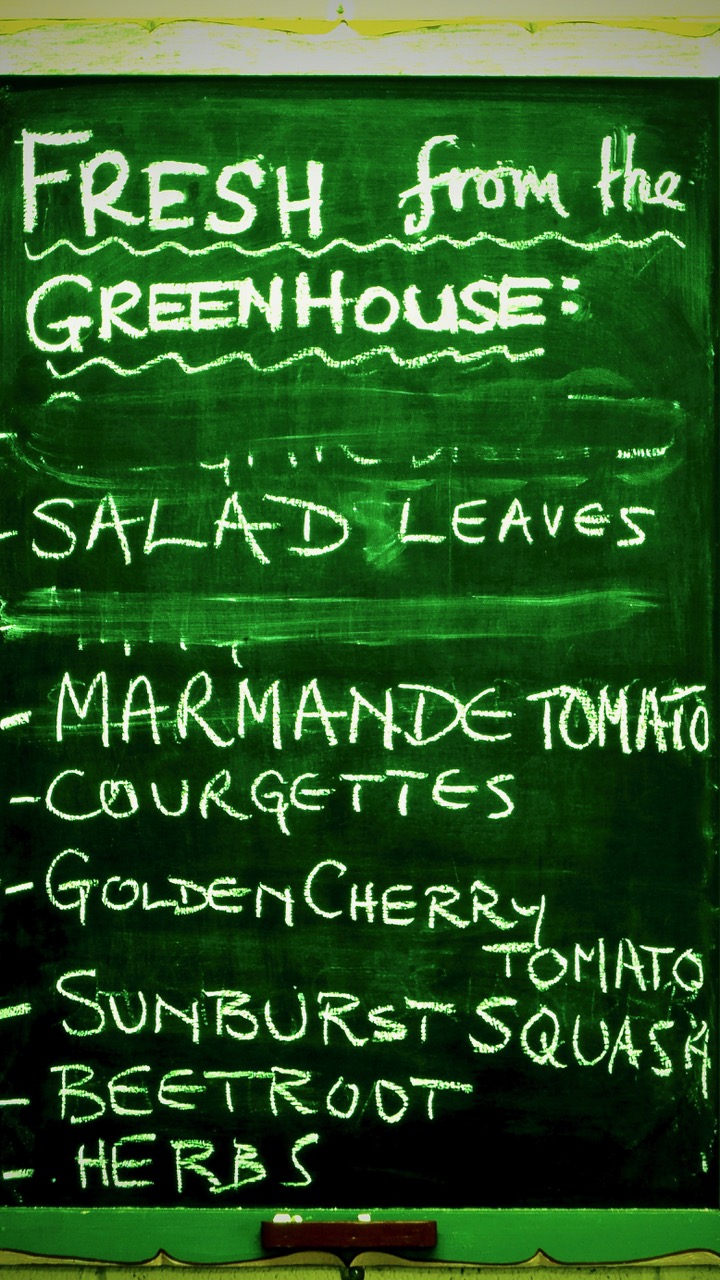 FRESH from the
GREENHOUSE:
- SALAD LEAVES
- MARMANDE TOMATO
- COURGETTES
- GOLDEN CHERRY
TOMATO
- SUNBURST SQUASH
- BEETROOT
- HERBS